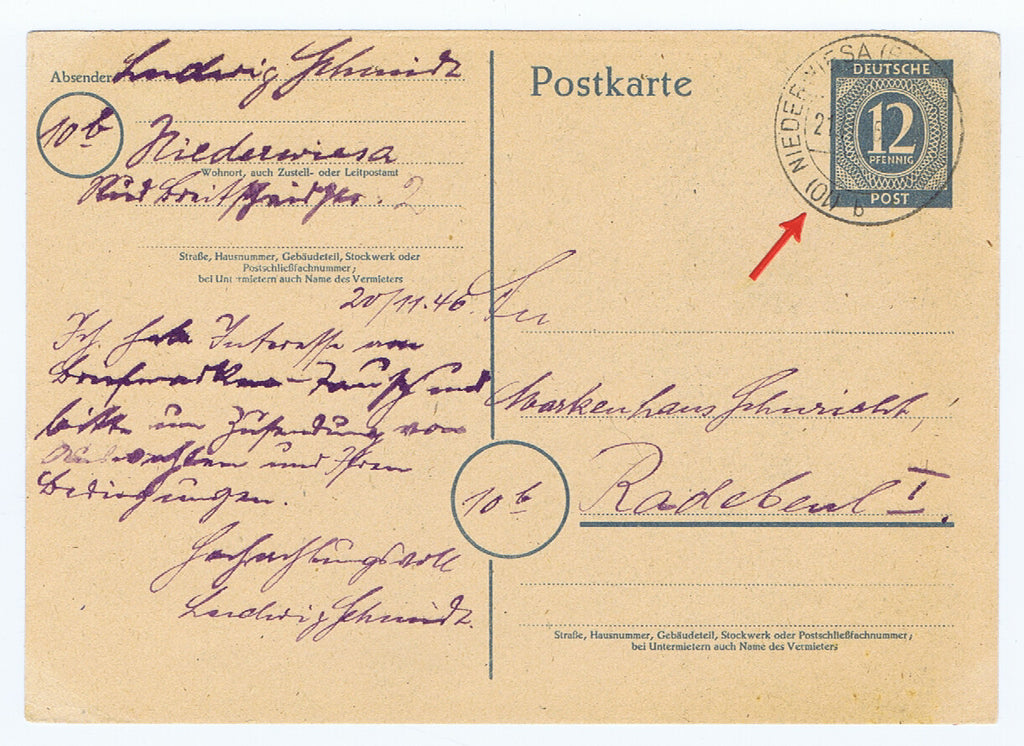 Absender: Ludwig Schmidt
10 b
Niederwiesa
Wohnort, auch Zustell- oder Leitpostamt
Rud Breitscheidstr. 2
Straße, Hausnummer, Gebäudeteil, Stockwerk oder
Postschließfachnummer;
bei Untermietern auch Name des Vermieters
20/11.46.
Ich habe Interesse am
Briefmarken-Tausch und
bitte um Zusendung von
und Ihren
Bedingungen.
Hochachtungsvoll
Ludwig Schmidt.
Postkarte
NIEDERWIESA
21
b
DEUTSCHE
12
PFENNIG
POST
An
Markenhaus Schuricht,
10 b
Radebeul I.
Straße, Hausnummer, Gebäudeteil, Stockwerk oder Postschließfachnummer;
bei Untermietern auch Name des Vermieters